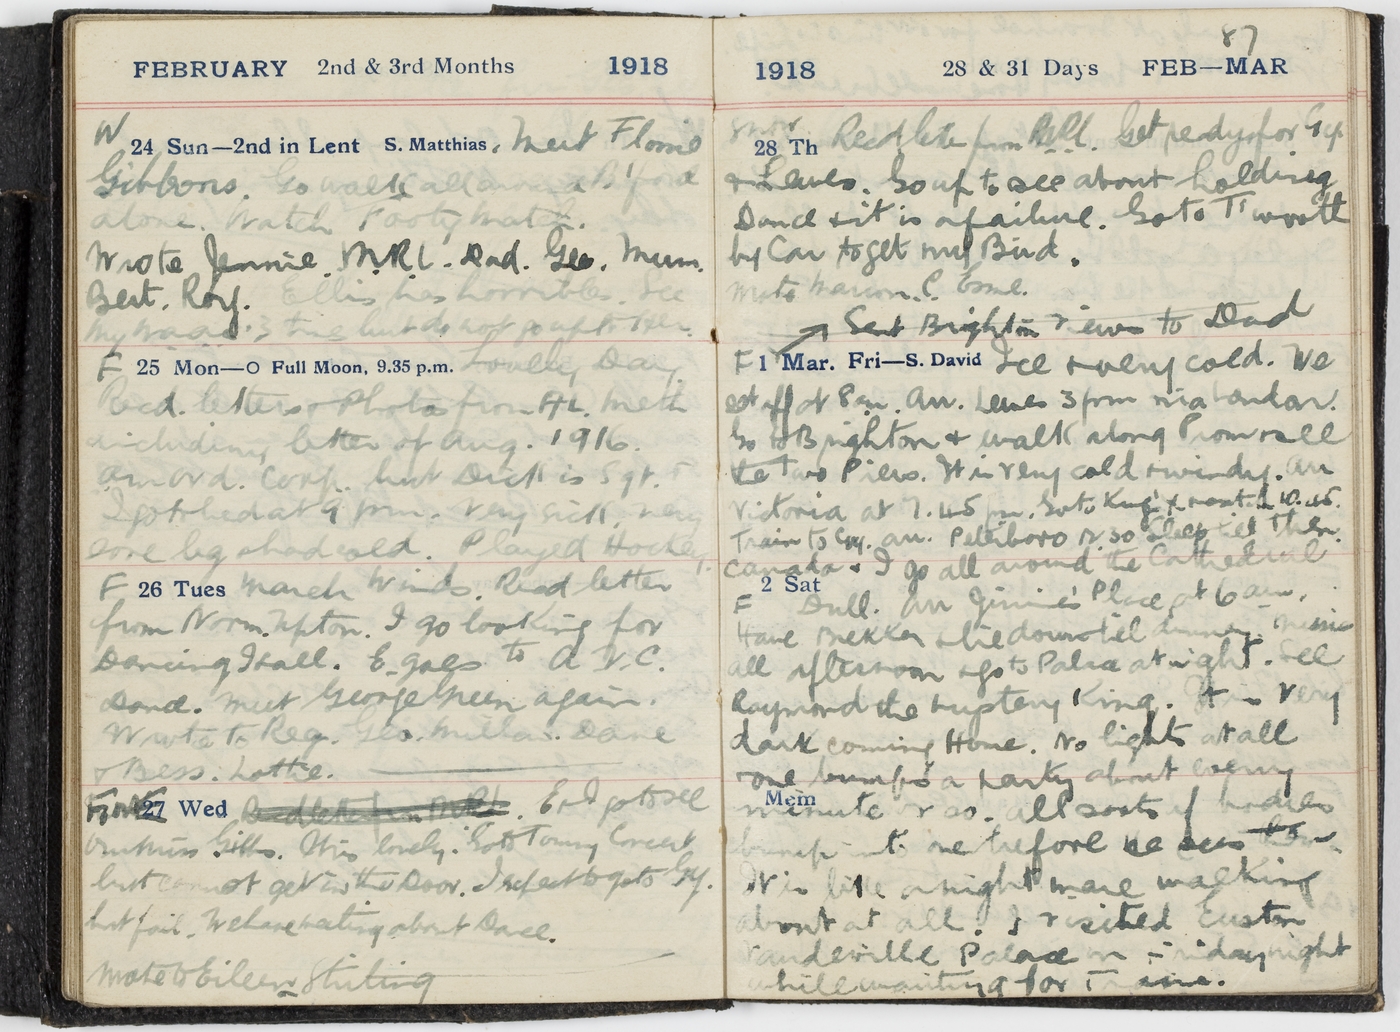 FEBRUARY 2nd & 3rd Months 1918
W 24 Sun—2nd in Lent S. Matthias. Meet Florrie
Gibbons. Go walk all around B'ford
alone. Watch Footy Match.
Wrote Jennie. M.R.L. Dad. Geo. Mum.
Bert. Roy. Ellis has horribles. See
my 3 time but do not go up to Her.
F 25 Mon—O Full Moon, 9.35 p.m. Lovely Day
Recd. letters & Photos from
including letter of Aug. 1916.
Corp. but Dick is Sgt.
I got to bed at 9 pm. Very sick, very
sore leg & bad cold. Played Hockey.
F 26 Tues March Winds. Recd letter
from Norm. Upton. I go looking for
Dancing Hall. E. goes to A.V.C.
Dance. Meet George Green again.
Wrote to Reg. Geo. Millar. Dave
& Bess. Lottie.
27 Wed Recd letter from MRL. E. & I go to see
Miss Gibbs. It is lovely. Go to Tommy Concert
but cannot get in the Door. I expect to go to Gy.
but fail. We have meeting about Dance.
Wrote to Eileen Stirling
87
1918 28 & 31 Days FEB—MAR
Snow.
28 Th Recd lete from MRL. Get ready for Gy.
& Lewes. Go up to see about holding
Dance & it is a failure. Go to T'worth
by Car to get my Bird.
Wrote Marion. C. Esme.
Sent Brighton views to Dad
F 1 Mar. Fri—S. David Ice & very cold. We
set off at 8 am. Arr. Lewes 3 pm via London.
Go to Brighton & walk along Prom & see
the Two Piers. It is very cold & windy. Arr
Victoria at 7.45 pm. Go to King's X & wait til 10.45.
Train to Gy. arr. Peterboro Sleep til then.
Canada & I go all around the Cathedral
2 Sat
F Dull. Arr Jinnie's Place at 6 am.
Have Brekker & lie down til dinner. Music
all afternoon & go to Palace at night. See
Raymond the Mystery King. It is very
dark coming Home. No lights at all
& one bumps a party about every
Mem
minute or so. All sorts of bodies
bump into one before he sees them.
It is like a night mare walking
about at all. I visited Euston
Vaudeville Palace on Friday night
while waiting for Train.